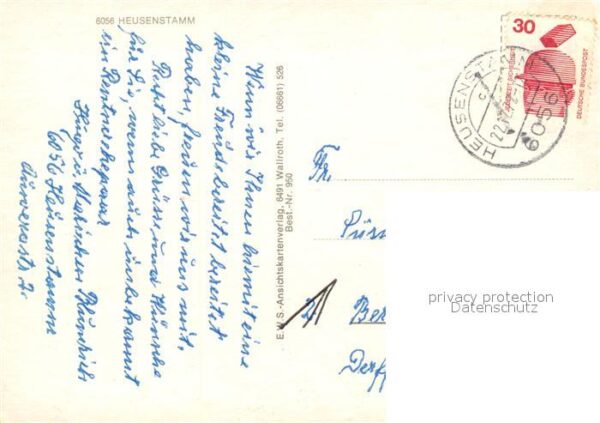 6056 HEUSENSTAMM
Wenn wir Ihnen hiermit eine
kleine Freude bereitet
haben, freuen wir uns mit.
Recht liebe Grüsse und Wünsche
für Sie, wenn auch unbekannt
ein Rentnerehepaar
6056 Heusenstamm
E.W.S.-Ansichtskartenverlag, 6491 Wallroth, Tel. (06661) 526
Best.-Nr. 950
30
DEUTSCHE BUNDESPOST
HEUSENST
6056
22.12
Fr.
Ber
privacy protection
Datenschutz